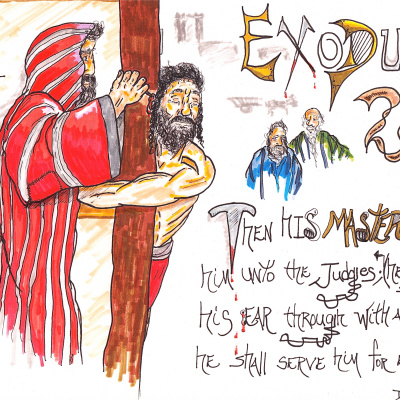 EXODU
2
THEN HIS MASTER
him UNTO the Judges; (he
HiS EAR through WiTH A
he SHAll SERVE him FOR